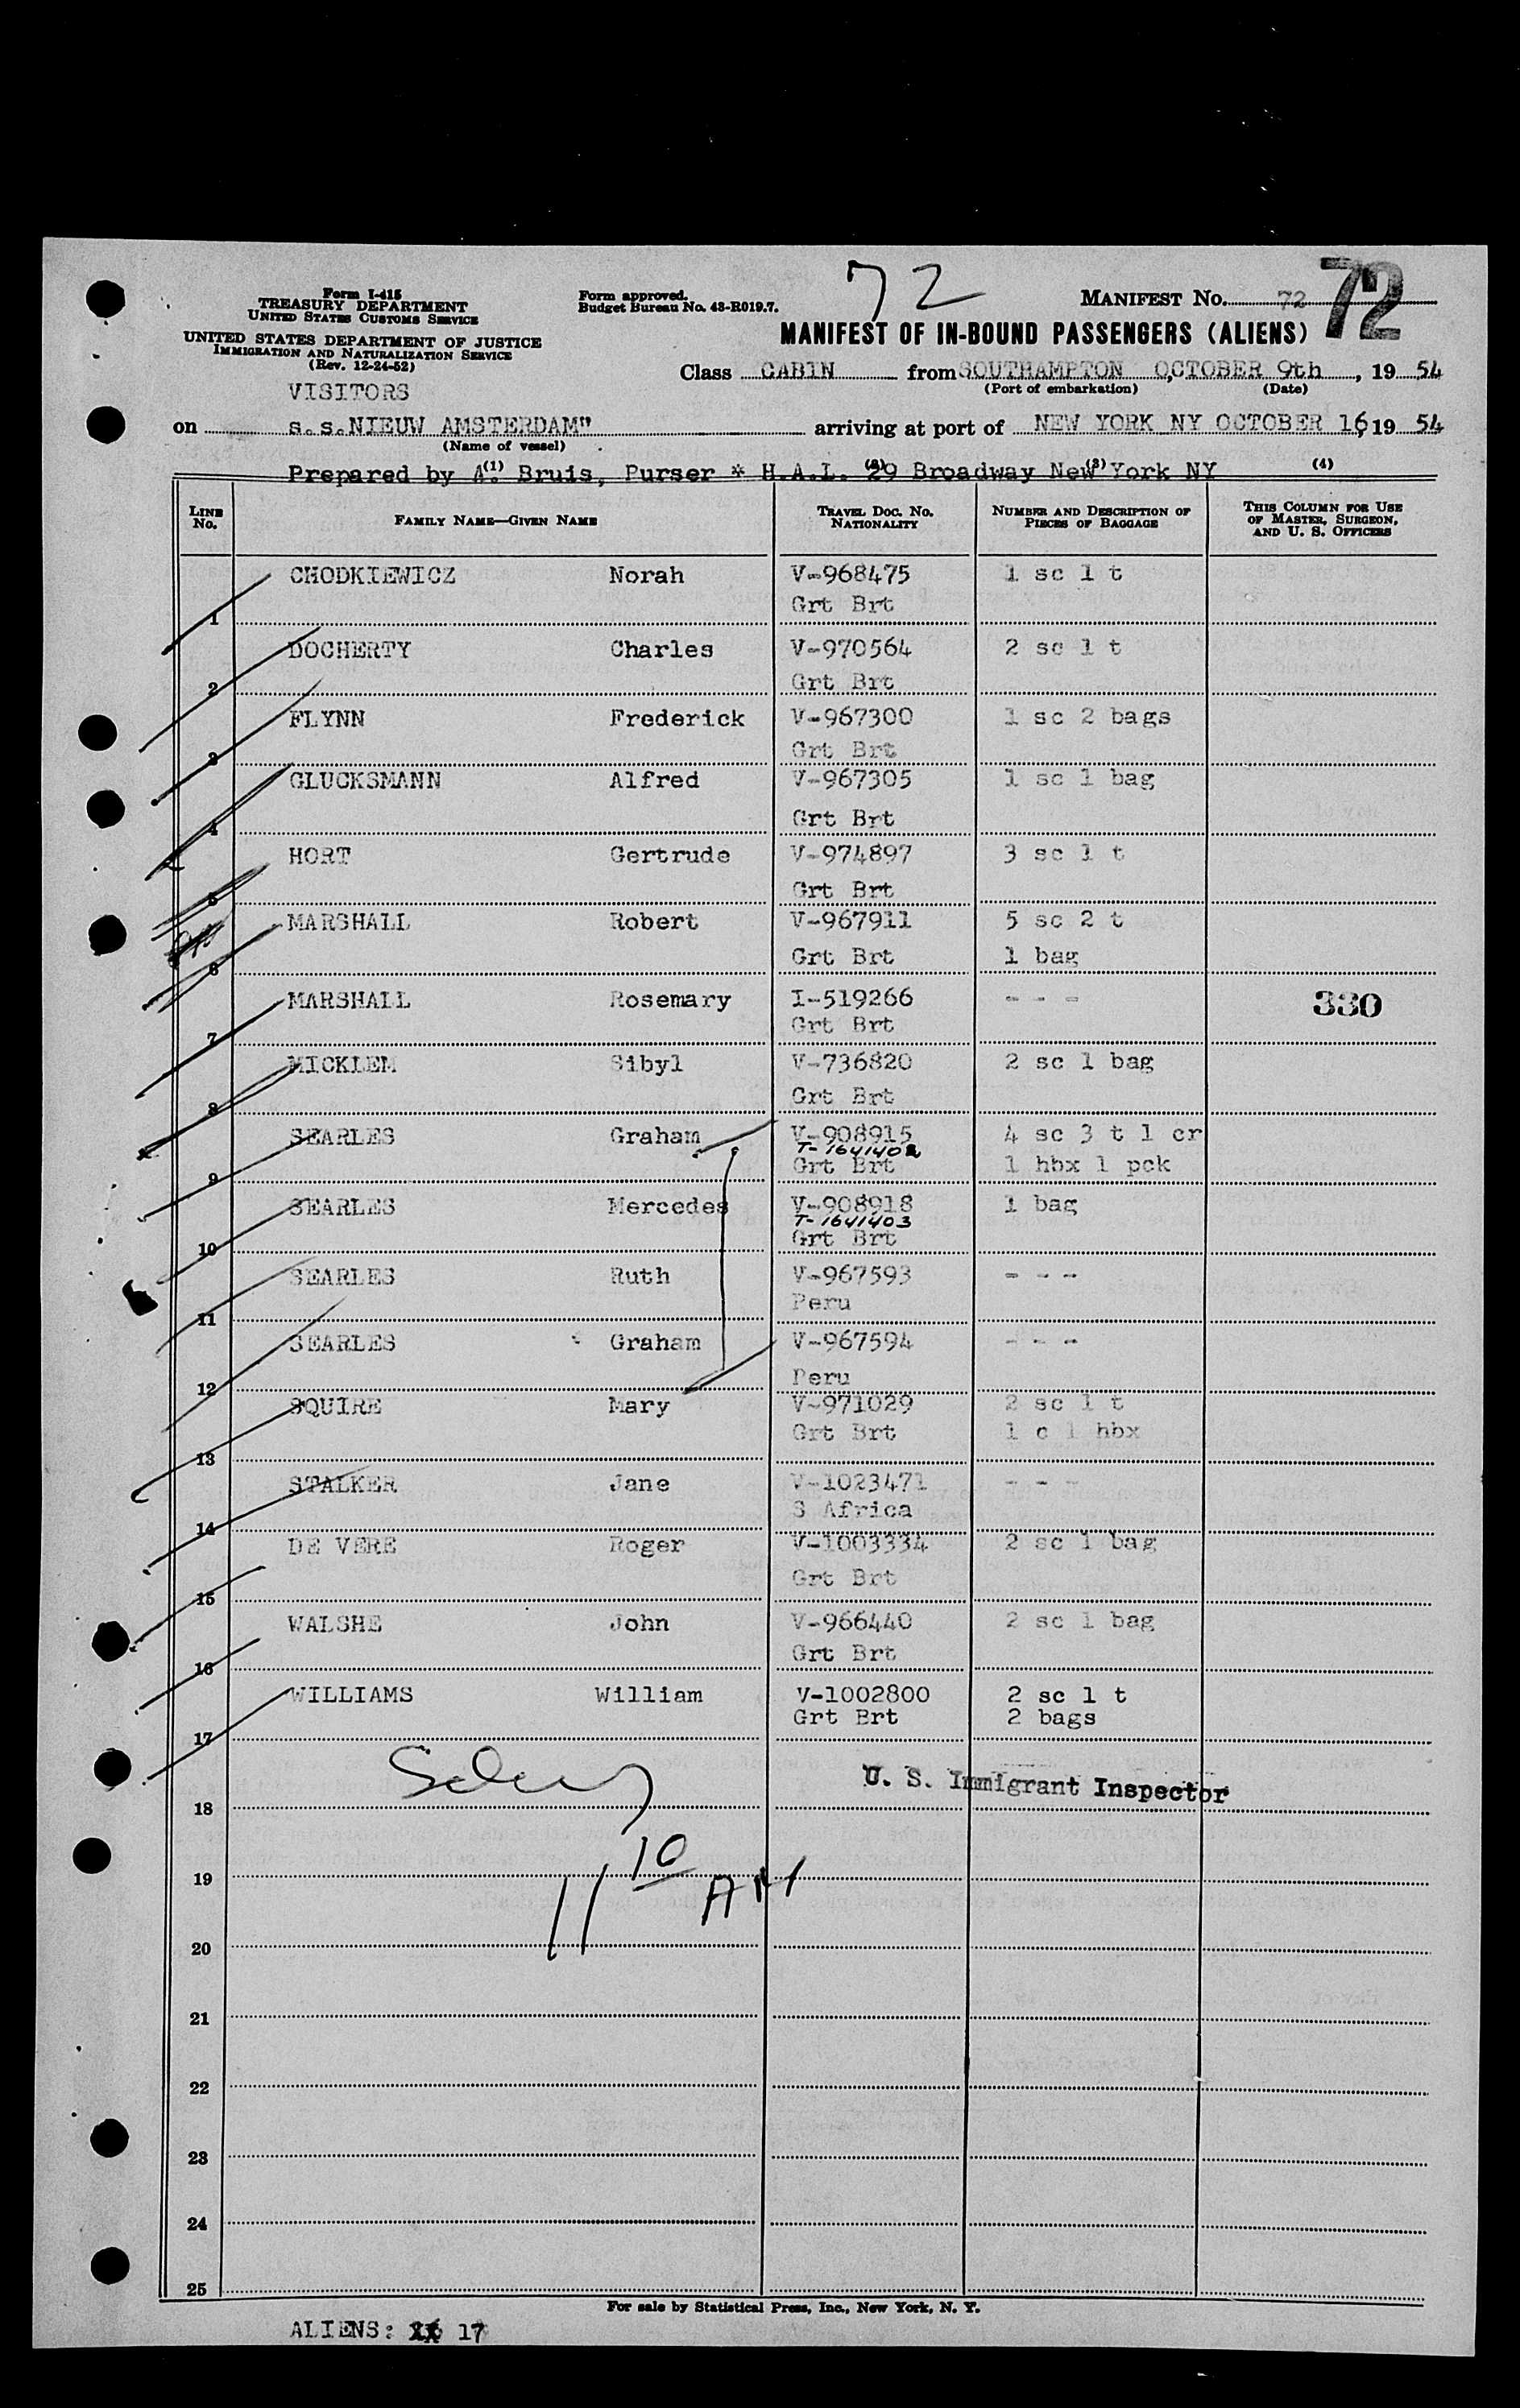 72
72
Form I-415
TREASURY DEPARTMENT
UNITED STATES CUSTOMS SERVICE
UNITED STATES DEPARTMENT OF JUSTICE
IMMIGRATION AND NATURALIZATION SERVICE
(Rev. 12-24-52)
Form approved.
Budget Bureau No. 43-R019.7.
MANIFEST No. 72
MANIFEST OF IN-BOUND PASSENGERS (ALIENS)
Class CABIN from SOUTHAMPTON OCTOBER 9th, 19 54
(Port of embarkation) (Date)
VISITORS
on s.s.NIEUW AMSTERDAM" arriving at port of NEW YORK NY OCTOBER 16, 19 54
(Name of vessel)
Prepared by A. Bruis, Purser * H.A.L. 29 Broadway New York NY
(1) (2) (3) (4)
LINE No. FAMILY NAME—GIVEN NAME TRAVEL DOC. NO. NATIONALITY NUMBER AND DESCRIPTION OF PIECES OF BAGGAGE THIS COLUMN FOR USE OF MASTER, SURGEON, AND U. S. OFFICERS
CHODKIEWICZ Norah V-968475 1 sc 1 t
1 Grt Brt
DOCHERTY Charles V-970564 2 sc 1 t
2 Grt Brt
FLYNN Frederick V-967300 1 sc 2 bags
3 Grt Brt
GLUCKSMANN Alfred V-967305 1 sc 1 bag
4 Grt Brt
HORT Gertrude V-974897 3 sc 1 t
5 Grt Brt
MARSHALL Robert V-967911 5 sc 2 t
6 Grt Brt 1 bag
MARSHALL Rosemary I-519266 - - - 330
7 Grt Brt
MICKLEM Sibyl V-736820 2 sc 1 bag
8 Grt Brt
SEARLES Graham V-908915 4 sc 3 t 1 cr
T-1641402
9 Grt Brt 1 hbx 1 pck
SEARLES Mercedes V-908918 1 bag
T-1641403
10 Grt Brt
SEARLES Ruth V-967593 - - -
11 Peru
SEARLES Graham V-967594 - - -
12 Peru
SQUIRE Mary V-971029 2 sc 1 t
13 Grt Brt 1 c 1 hbx
STALKER Jane V-1023471 - - -
14 S Africa
DE VERE Roger V-1003334 2 sc 1 bag
15 Grt Brt
WALSHE John V-966440 2 sc 1 bag
16 Grt Brt
WILLIAMS William V-1002800 2 sc 1 t
17 Grt Brt 2 bags
U. S. Immigrant Inspector
18
11 10 AM
19
20
21
22
23
24
25
For sale by Statistical Press, Inc., New York, N. Y.
ALIENS: 17